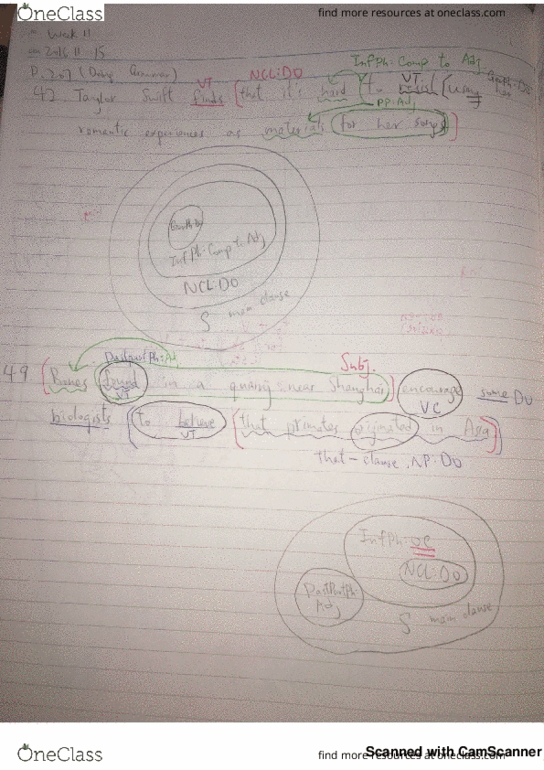 OneClass
find more resources at oneclass.com
Week 11
2016 11 15
P. 207 (Doing Grammar)
InfPh: Comp to Adj
VT NCL:DO VT GerPh:DO
43 Taylor Swift finds [that it's hard (to [using her
PP:Adj
romantic experiences as material (for her songs)]
GerPh:DO
InfPh: Comp to Adj
NCL:DO
S main clause
PastPartPh:Adj Subj.
49 [Bones found in a quarry near Shanghai] encourage some DO
VT VC
biologists (to believe [that primates originated in Asia)]
VT
that-clause, NP:DO
InfPh: OC
NCL:DO
PastPartPh:
Adj
S main clause
OneClass
find more resources at oneclass.com
Scanned with CamScanner